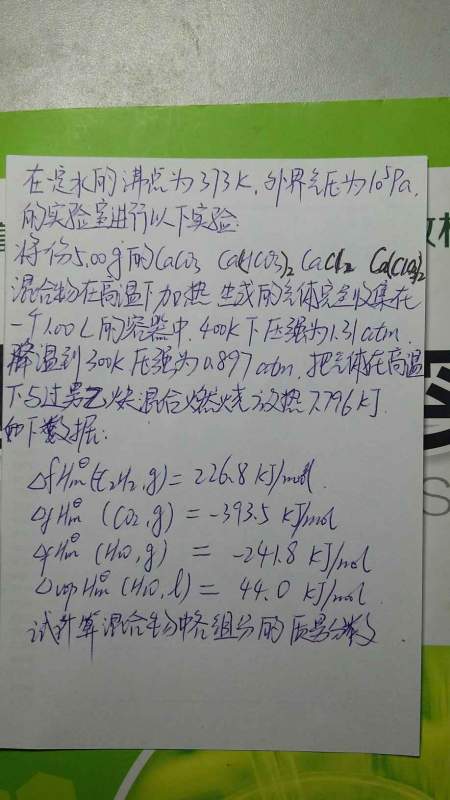 在定水的沸点为373K,外界气压为10⁵Pa,
的实验室进行以下实验:
将份5.00g的CaCO₃ Ca(HCO₃)₂ CaCl₂ Ca(ClO₃)₂
混合物在高温下加热 生成的气体完全收集在
一个1.00L的容器中. 400K下压强为1.31atm.
降温到300K压强为0.897atm. 把气体在高温
下与过量乙炔混合燃烧放热7.796KJ.
如下数据:
ΔfHm⊖(C₂H₂,g)=226.8KJ/mol.
ΔfHm⊖(CO₂,g)=-393.5KJ/mol
ΔfHm⊖(H₂O,g)=-241.8KJ/mol
ΔvapHm⊖(H₂O,l)=44.0KJ/mol
试计算混合物中各组分的质量分数
校
S